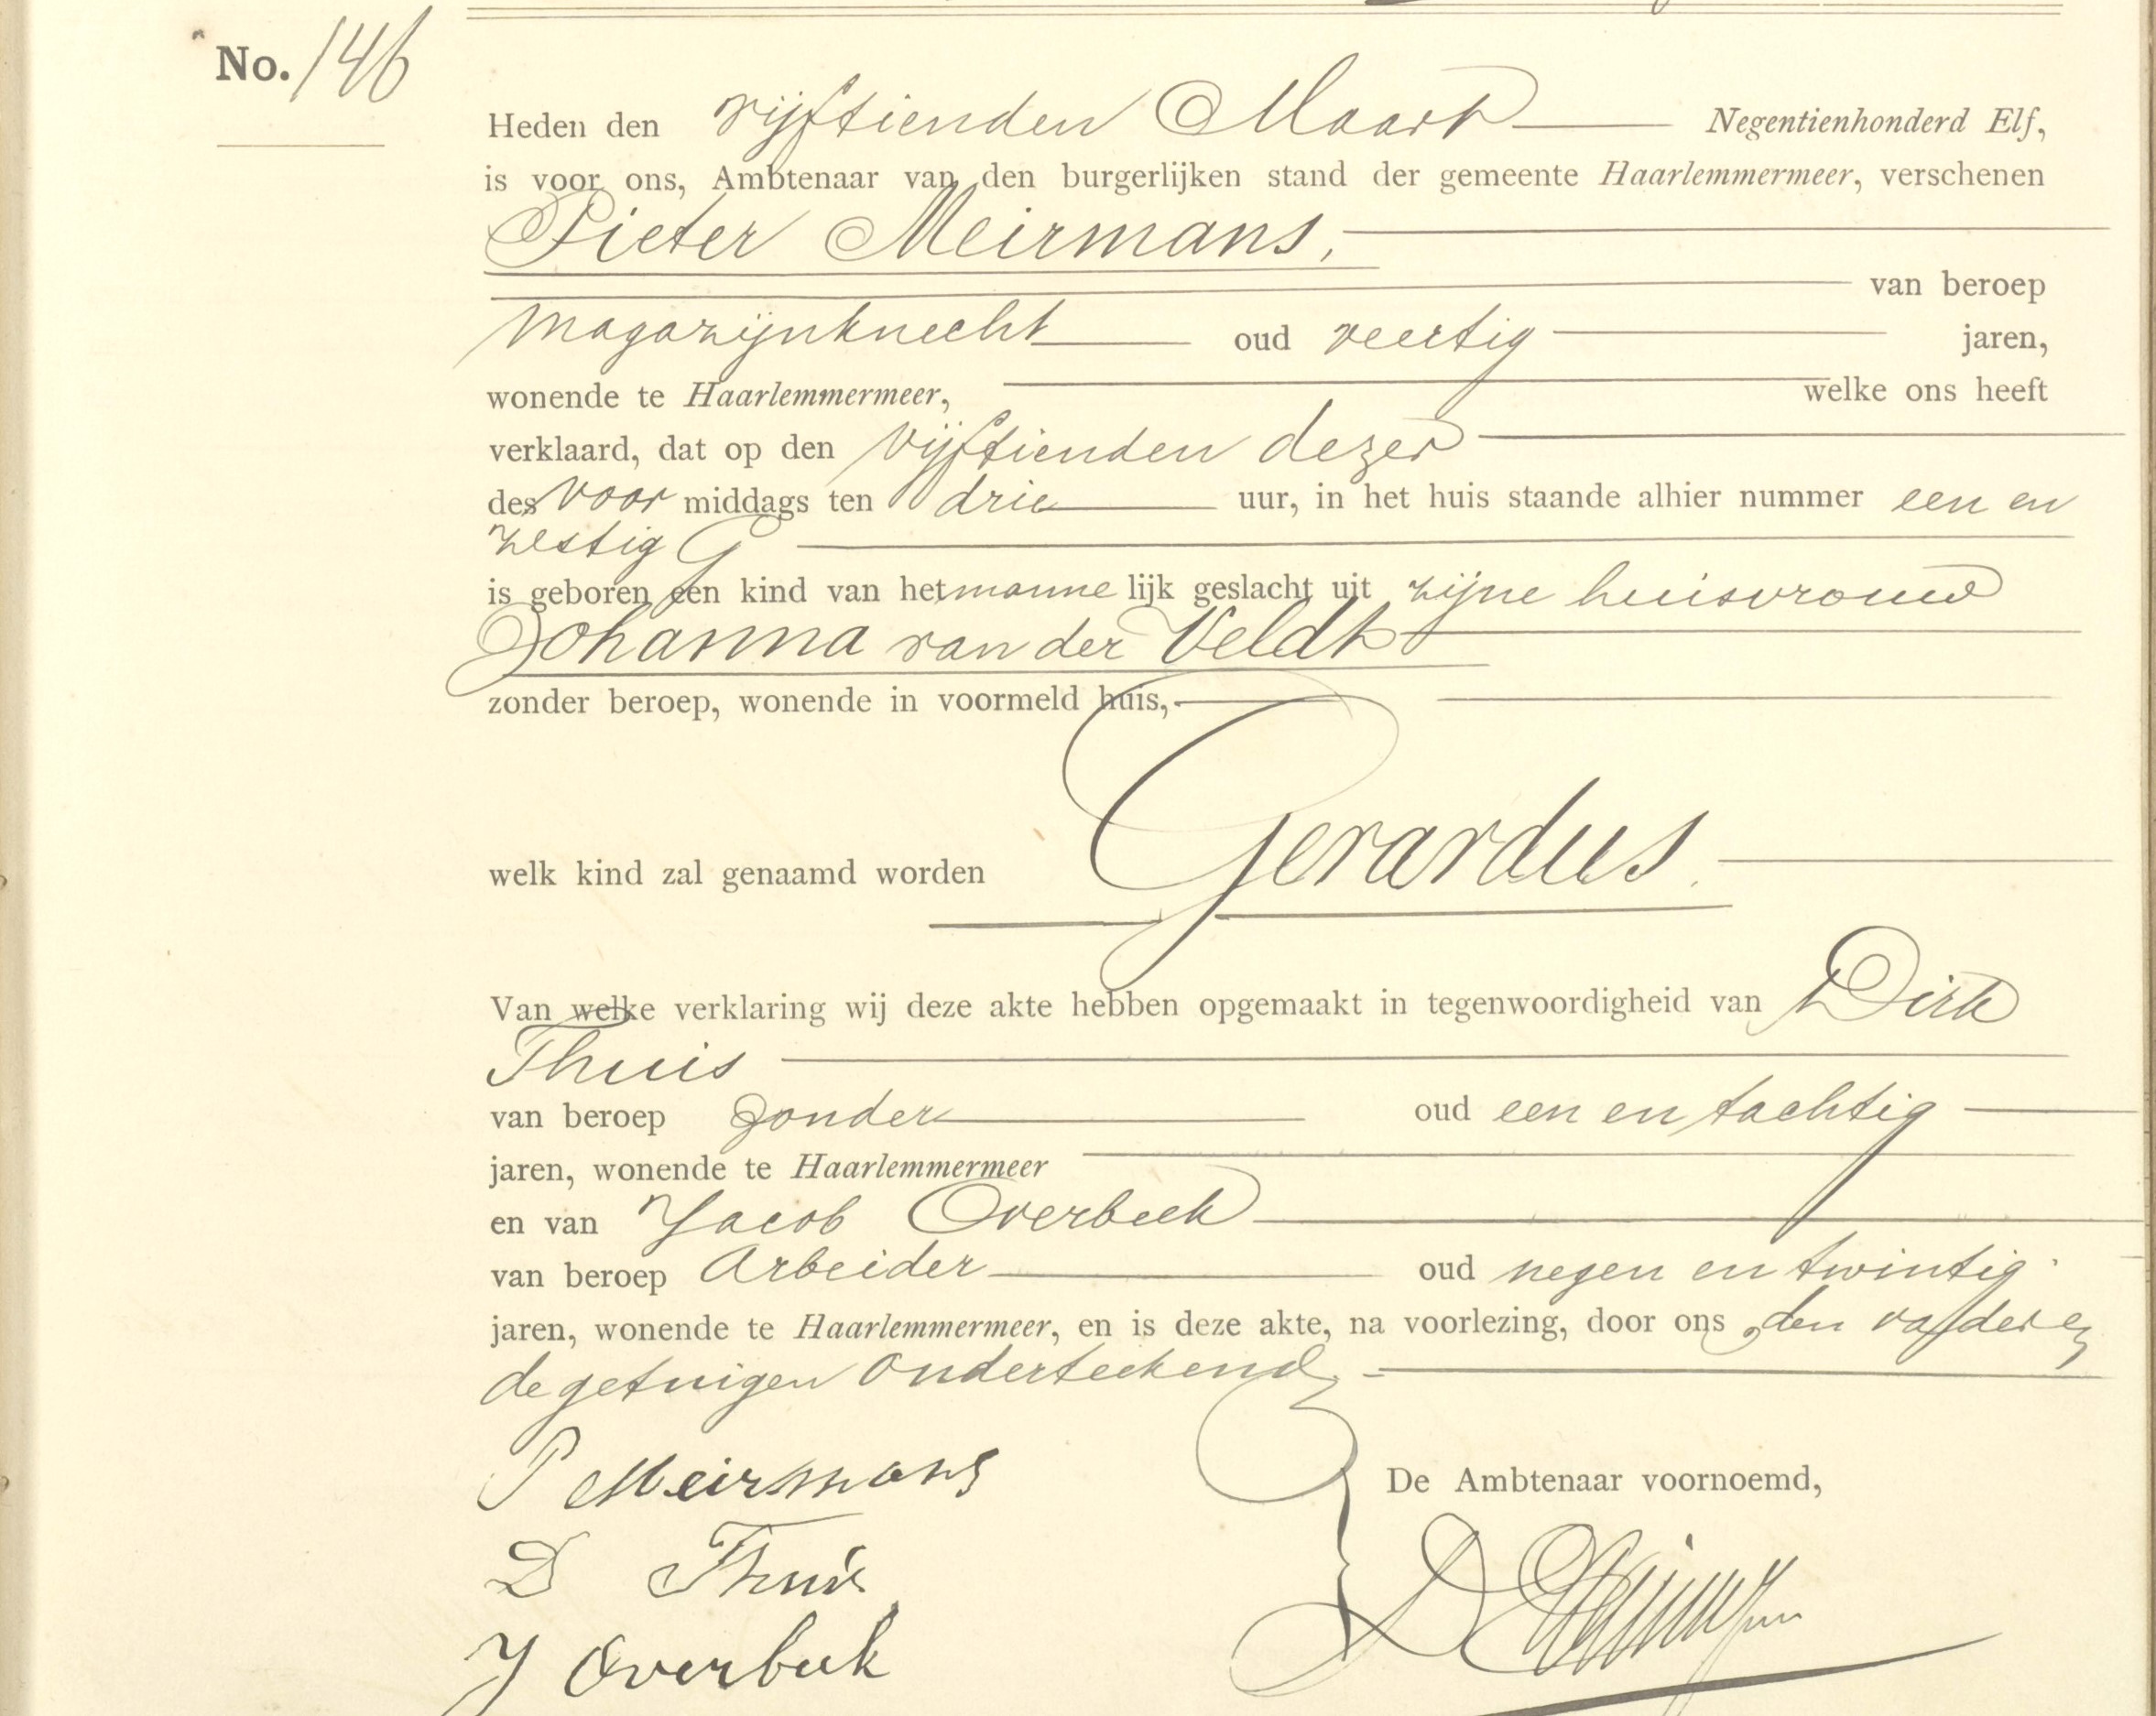 No. 146
Heden den vijftienden Maart Negentienhonderd Elf,
is voor ons, Ambtenaar van den burgerlijken stand der gemeente Haarlemmermeer, verschenen
Pieter Meirmans,
van beroep
magazijnknecht oud veertig jaren,
wonende te Haarlemmermeer, welke ons heeft
verklaard, dat op den vijftienden dezer
des voor middags ten drie uur, in het huis staande alhier nummer een en
zestig G
is geboren een kind van het manne lijk geslacht uit zijne huisvrouw
Johanna van der Veldt
zonder beroep, wonende in voormeld huis,
welk kind zal genaamd worden Gerardus.
Van welke verklaring wij deze akte hebben opgemaakt in tegenwoordigheid van Dirk
Thuis
van beroep zonder oud een en tachtig
jaren, wonende te Haarlemmermeer
en van Jacob Overbeek
van beroep Arbeider oud negen en twintig
jaren, wonende te Haarlemmermeer, en is deze akte, na voorlezing, door ons, den vader en
de getuigen onderteekend.
P Meirmans
De Ambtenaar voornoemd,
D Thuis
J Overbeek